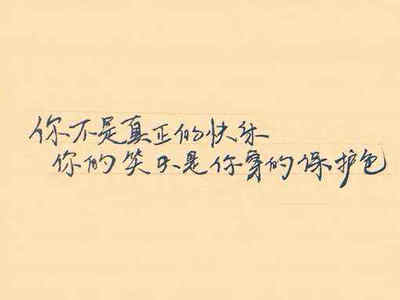 你不是真正的快乐
你的笑只是你穿的保护色